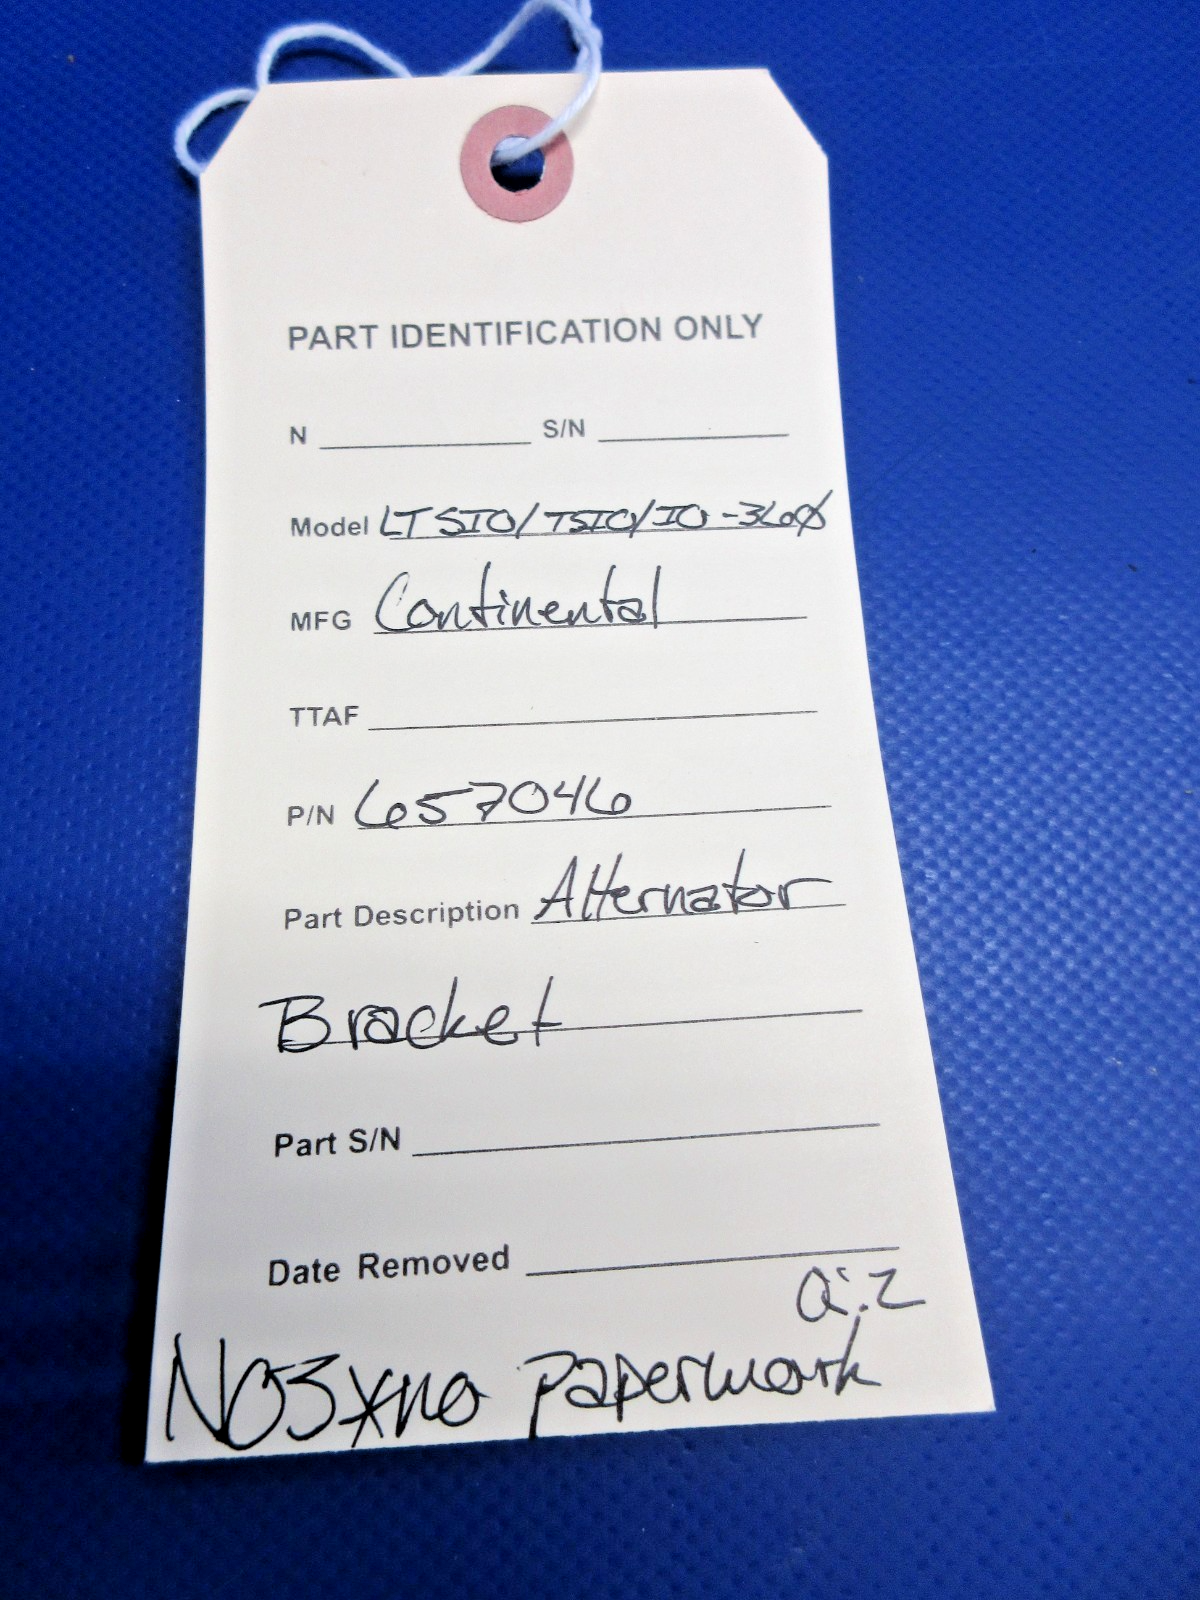 PART IDENTIFICATION ONLY
N S/N
Model LTSIO/TSIO/IO-360
MFG Continental
TTAF
P/N 657046
Part Description Alternator
Bracket
Part S/N
Date Removed
Q:2
NO3*no paperwork